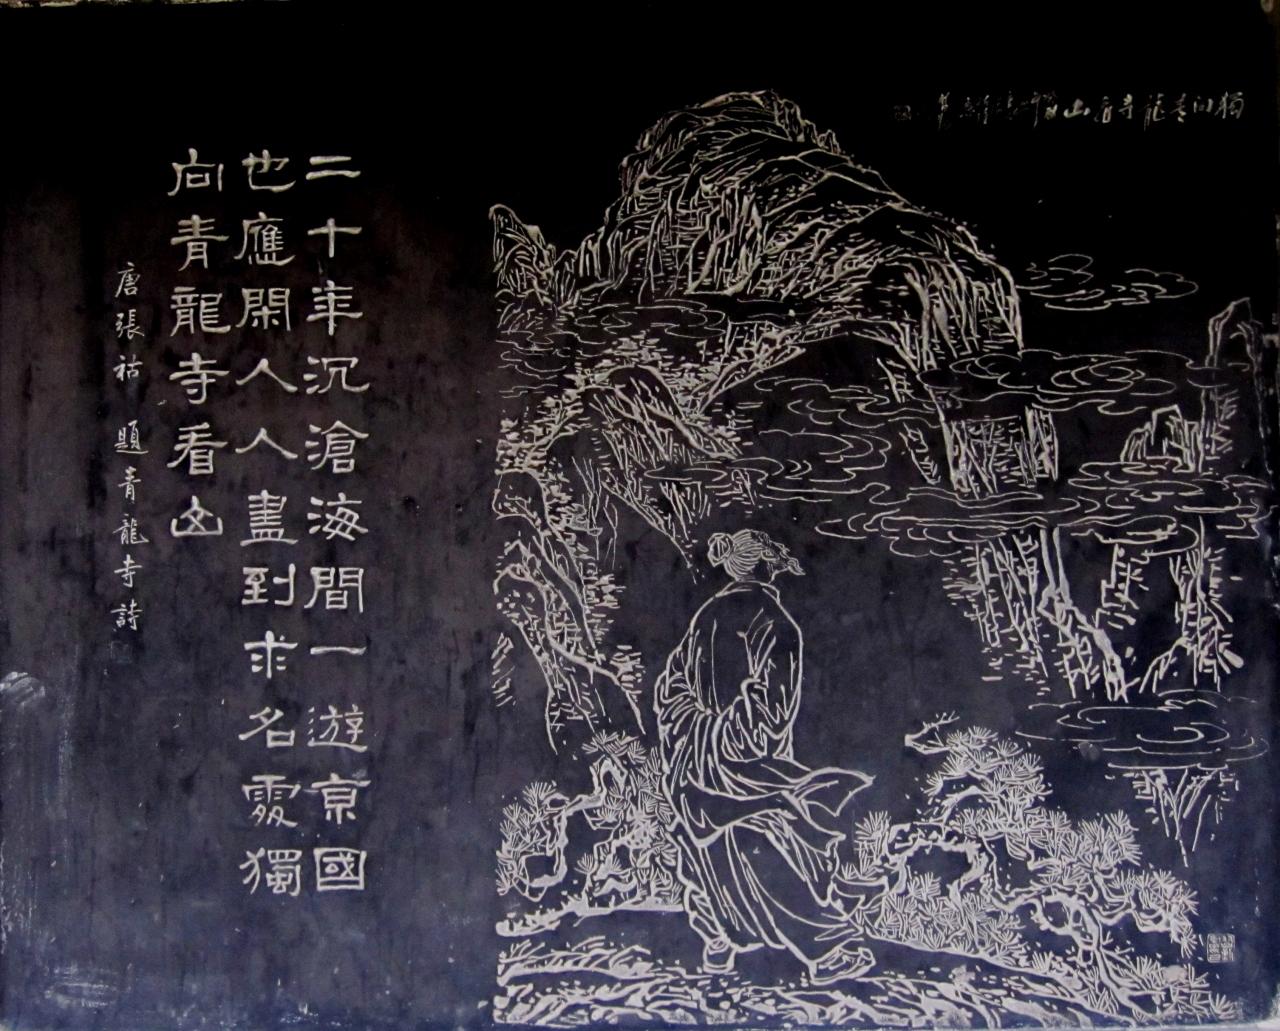 二十年沉滄海間一遊京國
也應閑人人盡到求名處獨
向青龍寺看山
唐張祜題青龍寺詩
獨向青龍寺看山